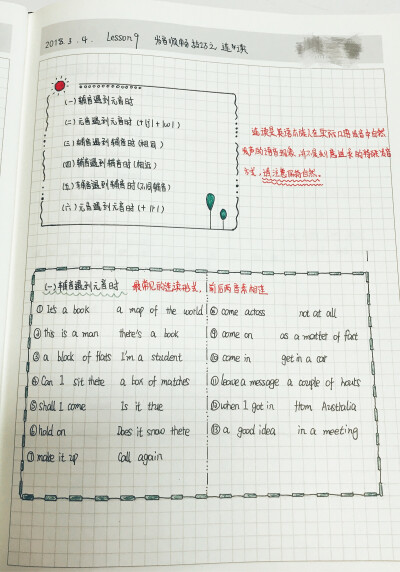 2018.3.4. Lesson 9 发音顺畅技巧之连读
(一) 辅音遇到元音时
(二) 元音遇到元音时 (+[j] +[w])
(三) 辅音遇到辅音时 (相同)
(四) 辅音遇到辅音时 (相近)
(五) 辅音遇到辅音时 (不同辅音)
(六) 元音遇到元音时 (+[r])
连读是英语本族人在实际口语语音中自然
发声的语音现象,
方式, 请注意保持自然。
(一) 辅音遇到元音时 最常见的连读形式, 前后两音素相连
① It's a book a map of the world
② this is a man there's a book
③ a block of flats I'm a student
④ Can I sit there a box of matches
⑤ shall I come Is it true
⑥ hold on Does it snow there
⑦ make it up Call again
⑧ come across not at all
⑨ come on as a matter of fact
⑩ come in get in a car
⑪ leave a message a couple of hours
⑫ when I got in from Australia
⑬ a good idea in a meeting